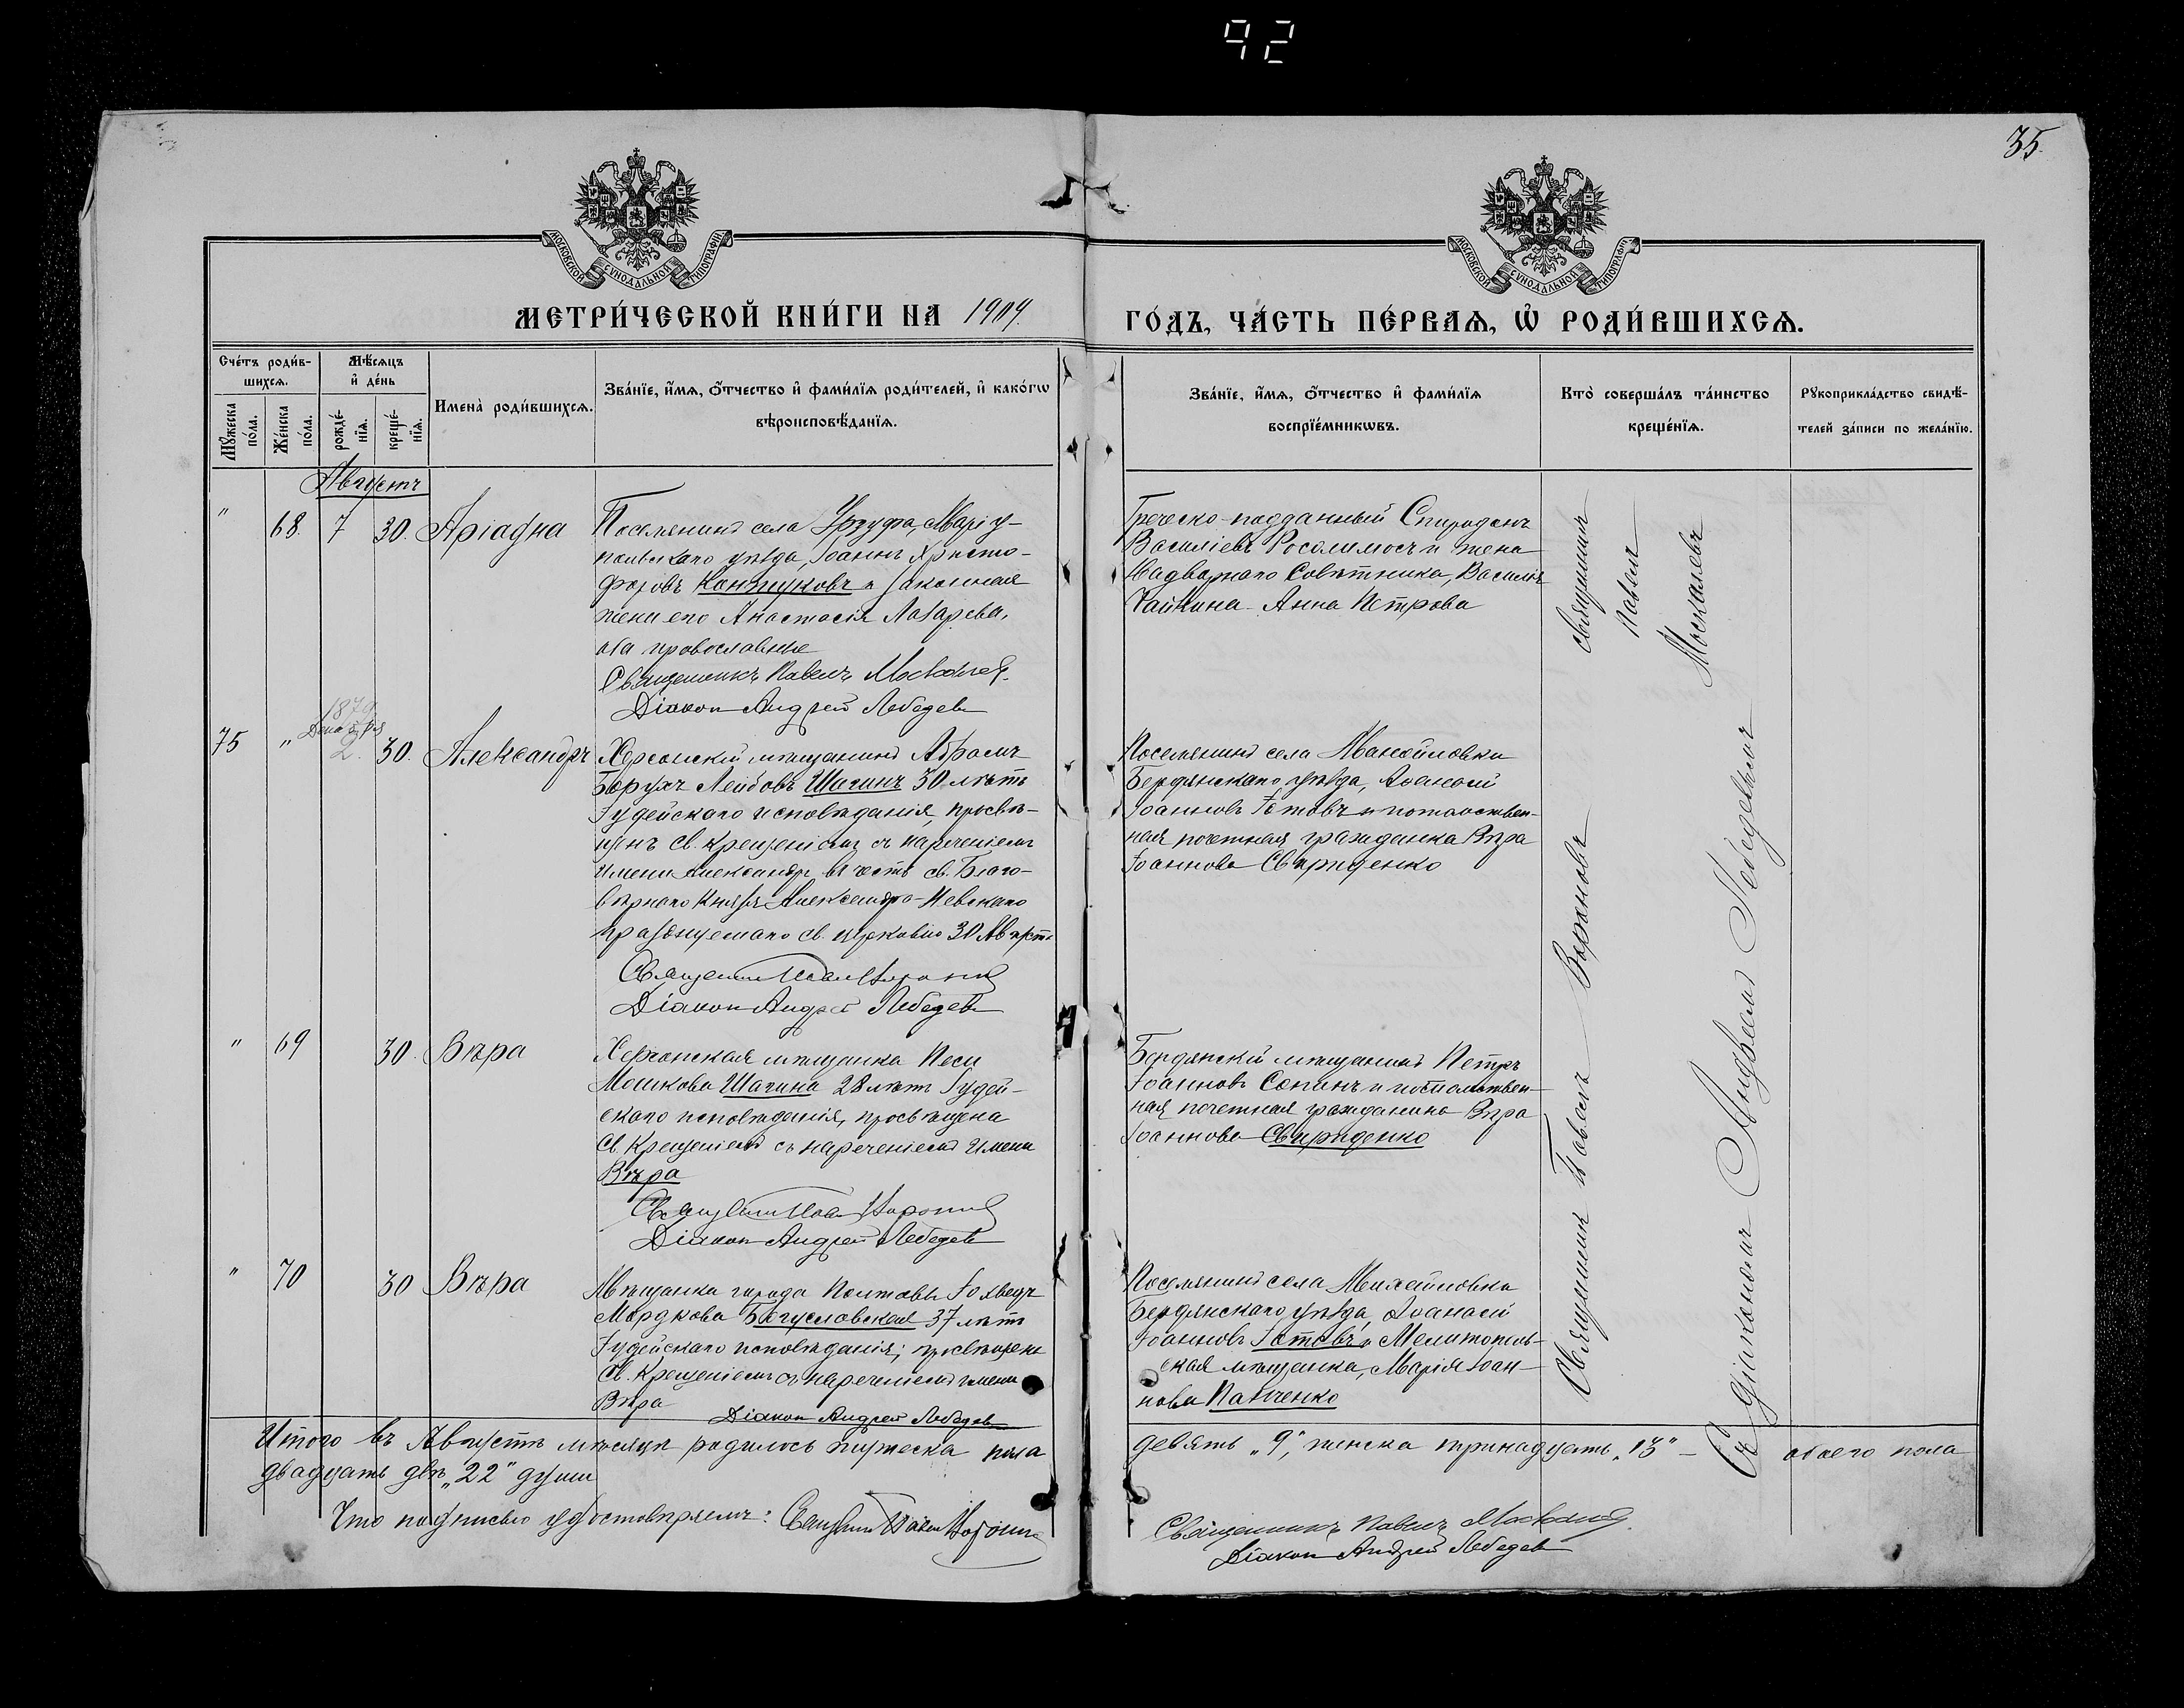 92
35.
МОСКОВСКОЙ СУНОДАЛЬНОЙ ТИПОГРАФІИ
МОСКОВСКОЙ СУНОДАЛЬНОЙ ТИПОГРАФІИ
МЕТРИ́ЧЕСКОЙ КНИ́ГИ НА 1909. ГО́ДЪ, ЧА́СТЬ ПЕ́РВАѦ, Ѡ҆ РОДИ́ВШИХСѦ.
Сче́тъ роди́в-
шихсѧ.
Мѣ́сѧцъ
и҆ де́нь
Мꙋ́жеска по́ла.
Же́нска по́ла.
рожде́-нїѧ.
креще́-нїѧ.
Имена̀ роди́вшихсѧ.
Зва́нїе, и҆́мѧ, ѻ҆́тчество и҆ фами́лїѧ роди́телей, и҆ како́гѡ
вѣроисповѣ́данїѧ.
Зва́нїе, и҆́мѧ, ѻ҆́тчество и҆ фами́лїѧ
воспрїе́мникѡвъ.
Кто̀ соверша́лъ та́инство
креще́нїѧ.
Рꙋкоприкла́дство свидѣ́-
телей за́писи по жела́нїю.
Августъ
" 68. 7 30. Аріадна
Поселянинъ села Урзуфа, Маріу-
польскаго уѣзда, Іоаннъ Христо-
форовъ Контуковъ и законная
жена его Анастасія Лазарева,
оба православные
Священникъ Павелъ
Діаконъ Андрей Лебедевъ
Греческо-подданный Спиридонъ
Василіевъ Росолимосъ и жена
Надворнаго Совѣтника, Василія
Чайкина Анна Петрова
священникъ
Павелъ
75 " 1879
Декабря
2. 30. Александръ
Херсонскій мѣщанинъ Абрамъ
Борухъ Лейбовъ Шагинъ 30 лѣтъ
Іудейскаго исповѣданія, просвѣ-
щенъ св. крещеніемъ съ нареченіемъ
имени Александръ въ честь св. Благо-
вѣрнаго Князя Александра-Невскаго
празднуемаго св. церковію 30 Августа
Священникъ Павелъ
Діаконъ Андрей Лебедевъ
Поселянинъ села
Бердянскаго уѣзда, Аѳанасій
Іоанновъ и потомствен-
ная почетная гражданка Вѣра
Іоаннова Свириденко
" 69 30. Вѣра
Херсонская мѣщанка Песи
Мошкова Шагина 28 лѣтъ Іудей-
скаго исповѣданія, просвѣщена
Св. Крещеніемъ съ нареченіемъ имени
Вѣра
Священникъ Павелъ
Діаконъ Андрей Лебедевъ
Бердянскій мѣщанинъ Петръ
Іоанновъ Сопинъ и потомствен-
ная почетная гражданка Вѣра
Іоаннова Свириденко
" 70 30 Вѣра
Мѣщанка города Полтавы
Мордкова Богуславская 37 лѣтъ
Іудейскаго исповѣданія; просвѣщена
Св. Крещеніемъ съ нареченіемъ имени
Вѣра
Діаконъ Андрей Лебедевъ
Поселянинъ села Михайловки
Бердянскаго уѣзда, Аѳанасій
Іоанновъ и Мелитополь-
ская мѣщанка, Марія Іоан-
нова Панченко
Священникъ Павелъ
Съ діакономъ Андреемъ Лебедевымъ
Итого въ Августѣ мѣсяцѣ родилось мужеска пола девять „9", женска тринадцать „13" — обоего пола
двадцать двѣ „22" души
Что подписью удостовѣряемъ: Священникъ Павелъ
Священникъ Павелъ
Діаконъ Андрей Лебедевъ